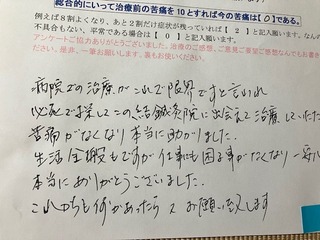 総合的にいって治療前の苦痛を10とすれば今の苦痛は【０】である。
例えば８割よくなり、あと２割だけ症状が残っていれば【 ２ 】と記入します。なんの
不具合もない、平常である場合は【 ０ 】と記入願います。
アンケートご協力ありがとうございました、治療のご感想、ご意見ご要望ご感想なんでもお書き
ださい。裏を使って
病院での治療がこれで限界ですと言われ
必死で探してこの結鍼灸院に出会えて治療していただ
苦痛がなくなり本当に助かりました。
生活全般もですが仕事にも困る事がなくなり一
本当にありがとうございました。
これからも何かあったら又お願い致します